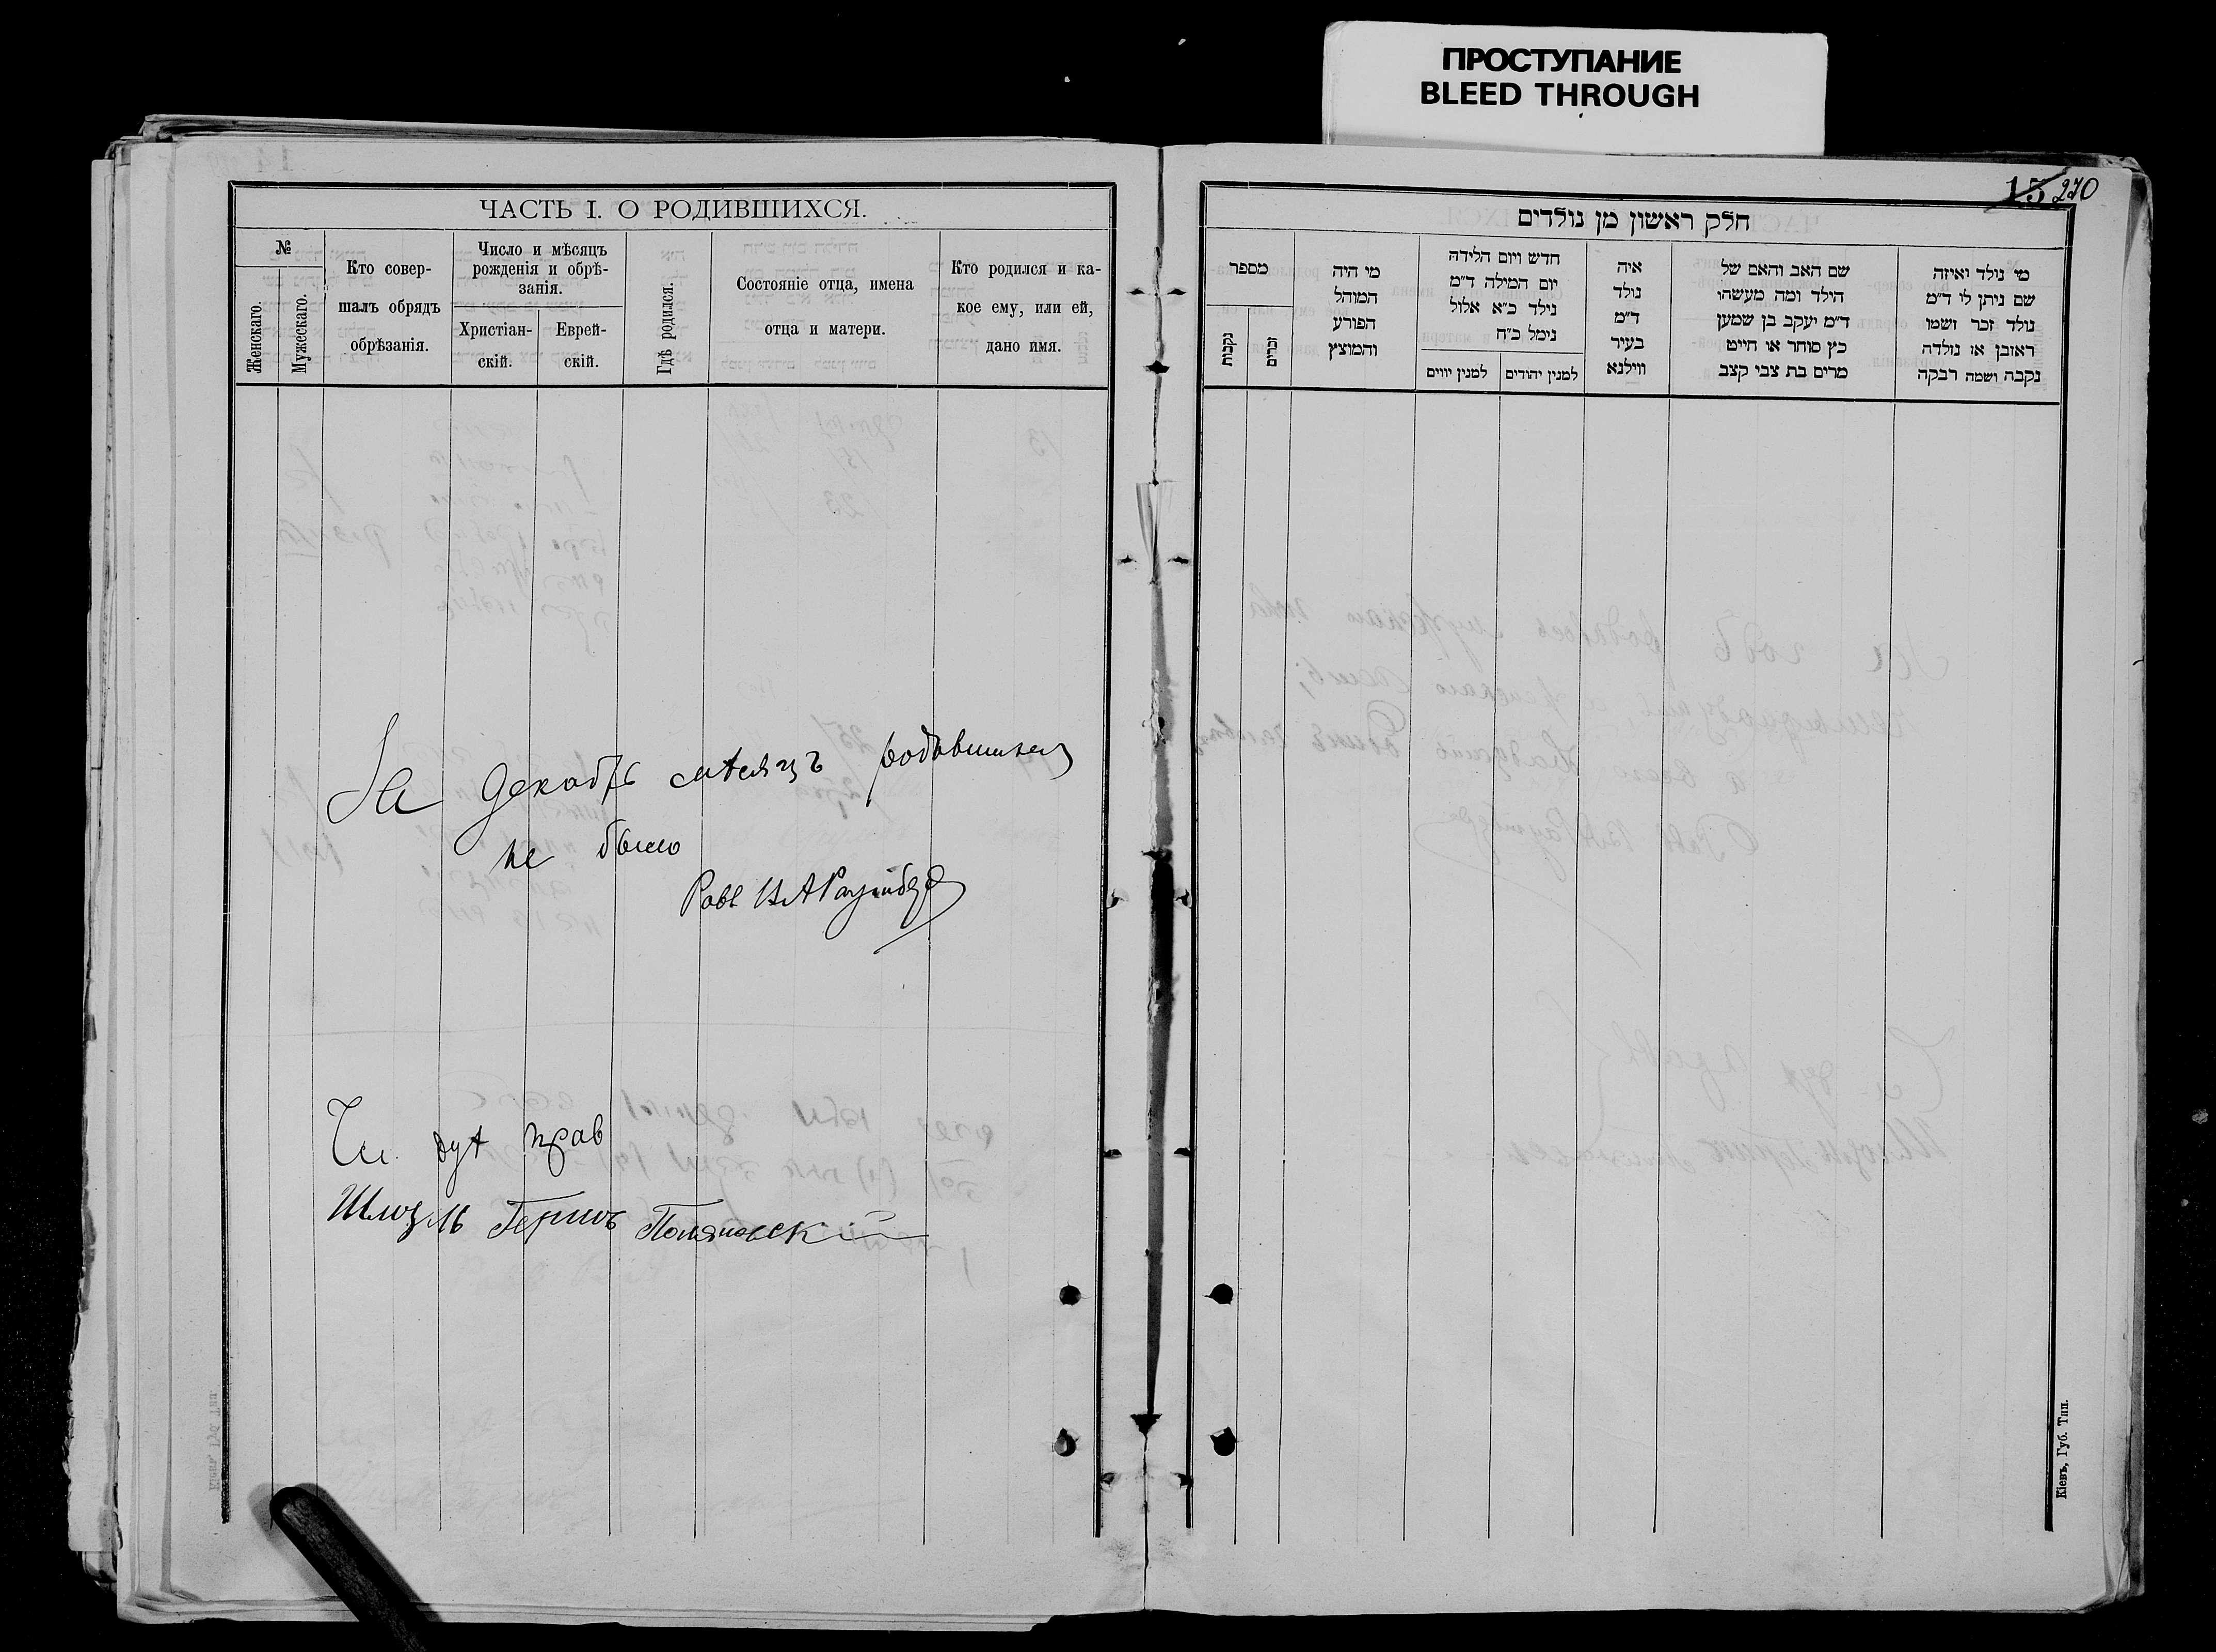 ПРОСТУПАНИЕ
BLEED THROUGH
ЧАСТЬ I. О РОДИВШИХСЯ.
№
Женскаго.
Мужескаго.
Кто совер-
шалъ обрядъ
обрѣзанія.
Число и мѣсяцъ
рожденія и обрѣ-
занія.
Христіан-
скій.
Еврей-
скій.
Гдѣ родился.
Состояніе отца, имена
отца и матери.
Кто родился и ка-
кое ему, или ей,
дано имя.
За Декабрь мѣсяцъ родившихся
не было
Рав
Чл. дух прав
Шмуль Герш
15 270
חלק ראשון מן נולדים
מי נולד ואיזה
שם ניתן לו ד״מ
נולד זכר ושמו
ראובן או נולדה
נקבה ושמה רבקה
שם האב והאם של
הילד ומה מעשהו
ד״מ יעקב בן שמעון
כץ סוחר או חייט
מרים בת צבי קצב
איה
נולד
ד״מ
בעיר
ווילנא
חדש ויום הלידה
יום המילה ד״מ
נילד כ״א אלול
נימל כ״ח
למנין יהודים
למנין יווים
מי היה
המוהל
הפורע
והמוצץ
מספר
זכרים
נקבות
Кіевъ, Губ. Тип.